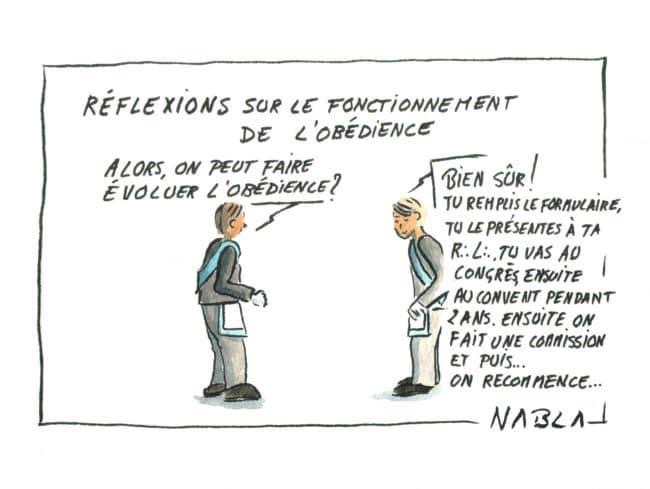 RÉFLEXIONS SUR LE FONCTIONNEMENT
DE L'OBÉDIENCE
ALORS, ON PEUT FAIRE
ÉVOLUER L'OBÉDIENCE?
BIEN SÛR!
TU REMPLIS LE FORMULAIRE,
TU LE PRÉSENTES À TA
R∴L∴, TU VAS AU
CONGRÈS ENSUITE
AU CONVENT PENDANT
2 ANS. ENSUITE ON
FAIT UNE COMMISSION
ET PUIS...
ON RECOMMENCE...
NABLA